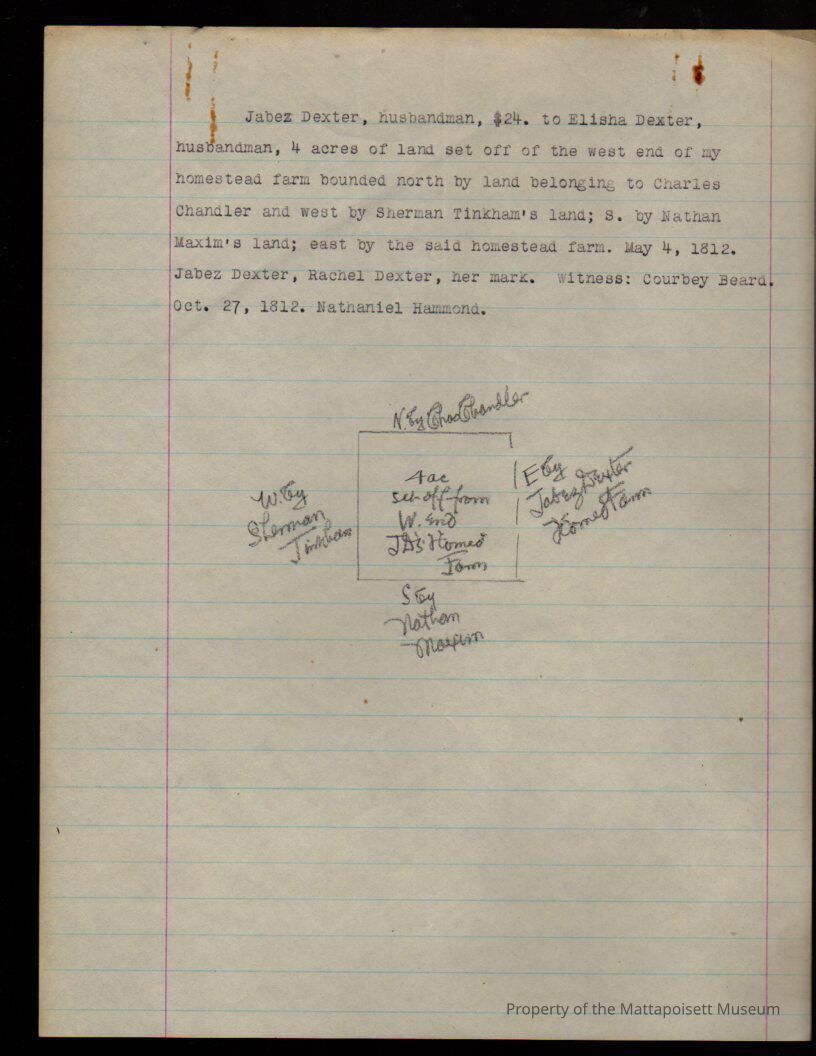 Jabez Dexter, husbandman, $24. to Elisha Dexter,
husbandman, 4 acres of land set off of the west end of my
homestead farm bounded north by land belonging to Charles
Chandler and west by Sherman Tinkham's land; S. by Nathan
Maxim's land; east by the said homestead farm. May 4, 1812.
Jabez Dexter, Rachel Dexter, her mark. Witness: Courbey Beard.
Oct. 27, 1812. Nathaniel Hammond.
N. by Chas Chandler
4 ac
set off from
W. End
JD's Homed
Farm
W. by
Sherman
Tinkham
E by
Jabez Dexter
Homed Farm
S by
Nathan
Maxim
Property of the Mattapoisett Museum